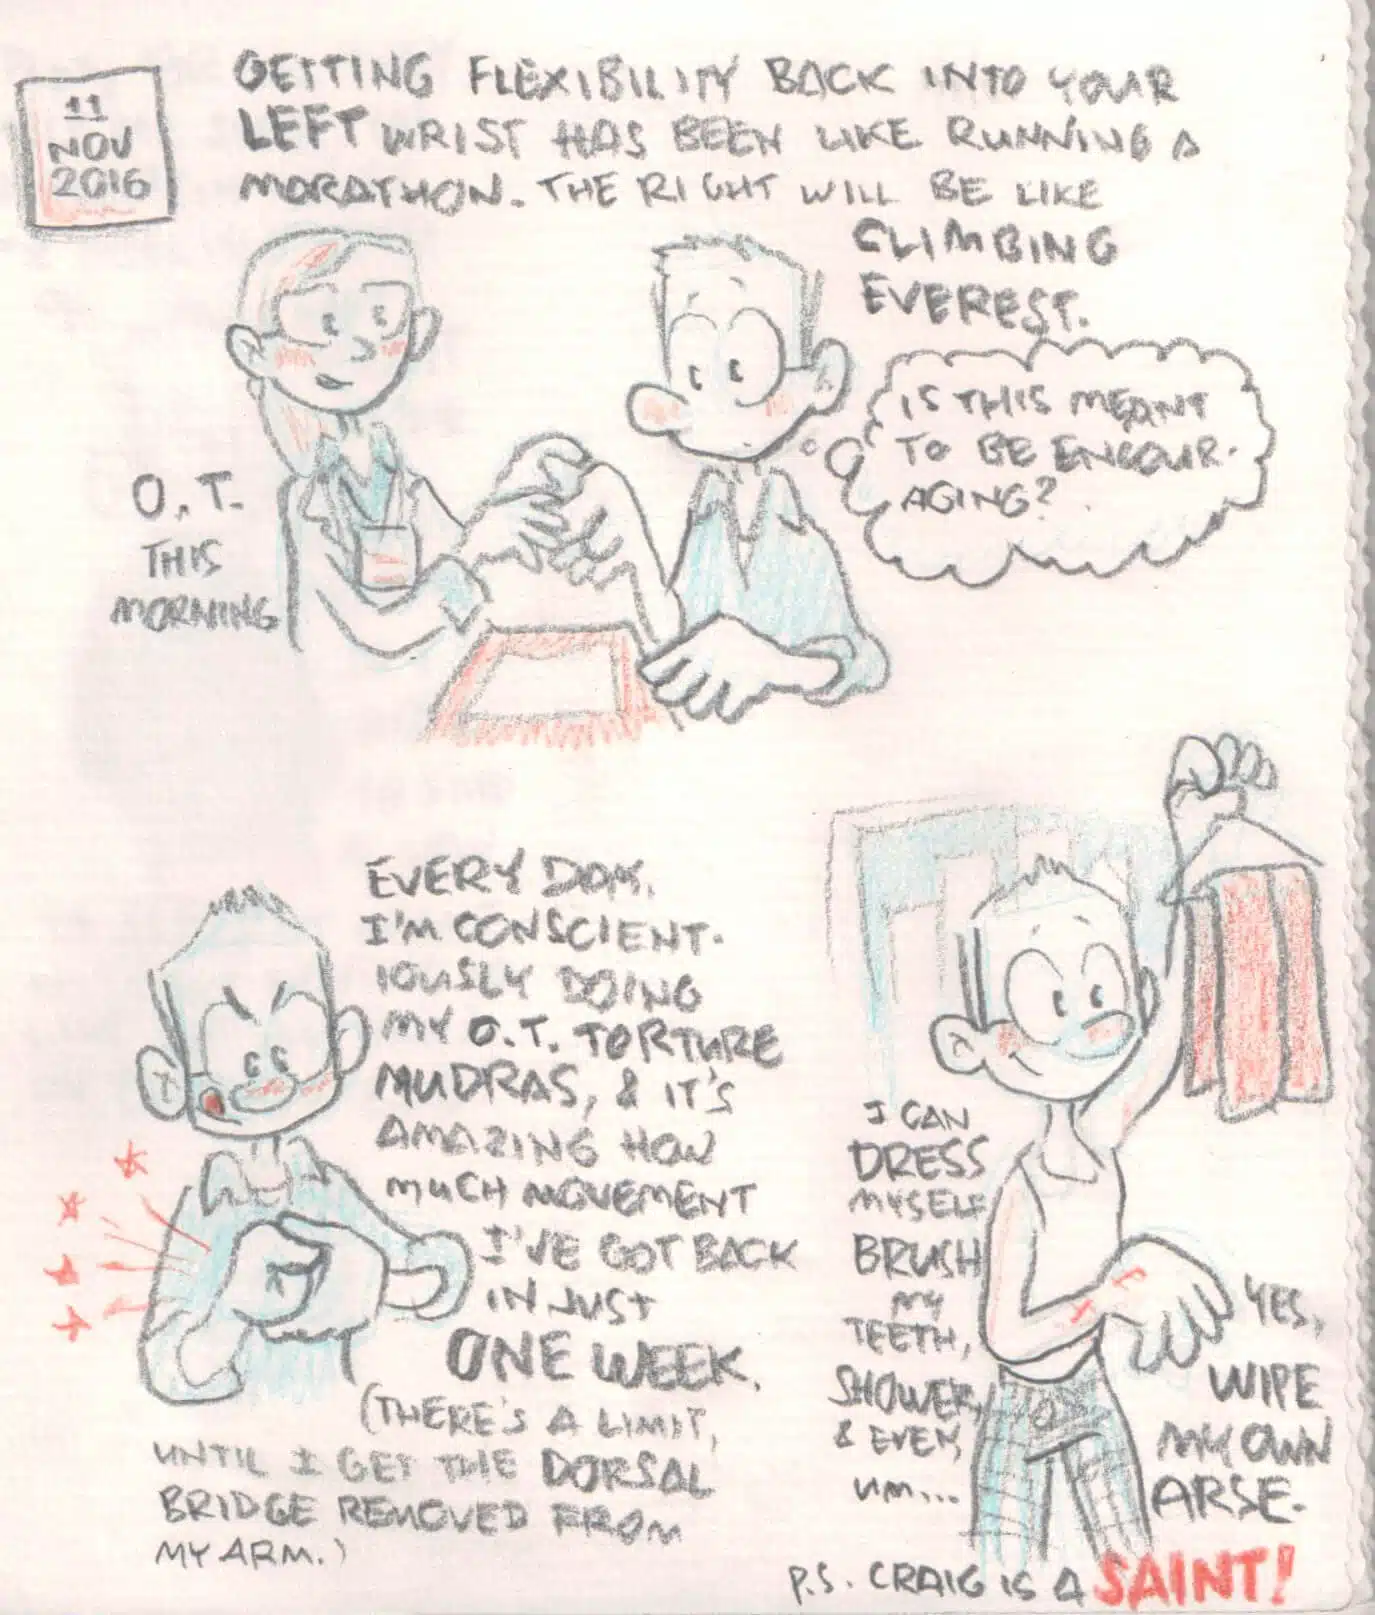 11
NOV
2016
GETTING FLEXIBILITY BACK INTO YOUR
LEFT WRIST HAS BEEN LIKE RUNNING A
MARATHON. THE RIGHT WILL BE LIKE
CLIMBING
EVEREST.
IS THIS MEANT
TO BE ENCOUR-
AGING?
O.T.
THIS
MORNING
EVERY DAY,
I'M CONSCIENT-
IOUSLY DOING
MY O.T. TORTURE
MUDRAS, & IT'S
AMAZING HOW
MUCH MOVEMENT
I'VE GOT BACK
IN JUST
ONE WEEK.
(THERE'S A LIMIT,
UNTIL I GET THE DORSAL
BRIDGE REMOVED FROM
MY ARM.)
I CAN
DRESS
MYSELF
BRUSH
MY
TEETH,
SHOWER,
& EVEN,
UM...
YES,
WIPE
MY OWN
ARSE.
P.S. CRAIG IS A SAINT!